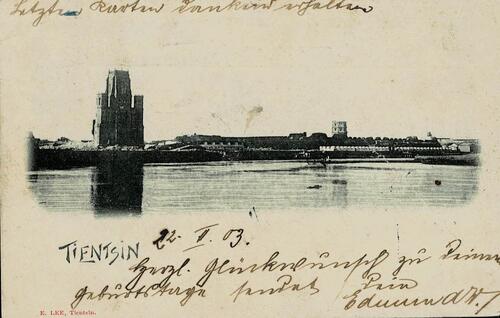 Letzten Karten dankend erhalten
TIENTSIN
22. II. 03.
Herzl. Glückwunsch zu Deinem
Geburtstage sendet Dein
E. LEE, Tientsin.